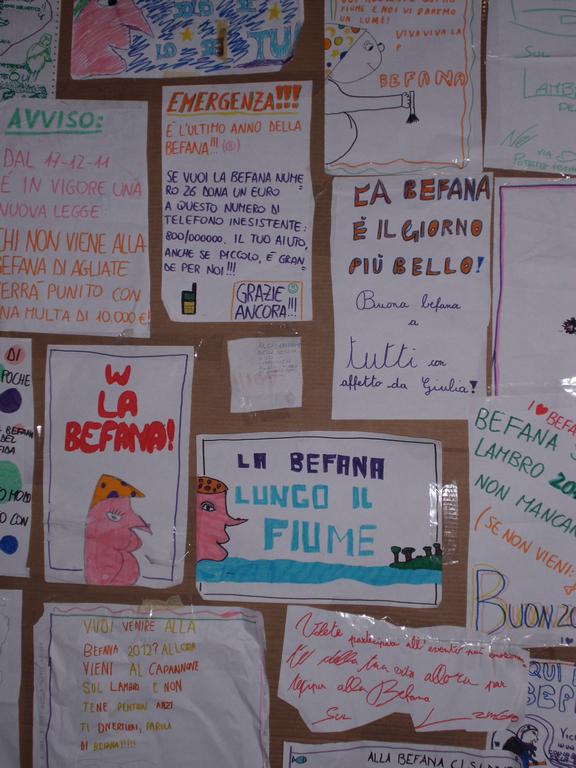 TU
FIUME E NOI VI DAREMO
UN LUME!
VIVA VIVA LA
BEFANA
SUL
LAMB
AVVISO:
DAL 17-12-11
É IN VIGORE UNA
NUOVA LEGGE:
CHI NON VIENE ALLA
BEFANA DI AGLIATE
VERRÀ PUNITO CON
UNA MULTA DI 10.000€!
EMERGENZA!!!
É L'ULTIMO ANNO DELLA
BEFANA!!!
SE VUOI LA BEFANA NUME
RO 26 DONA UN EURO
A QUESTO NUMERO DI
TELEFONO INESISTENTE:
800/000000. IL TUO AIUTO,
ANCHE SE PICCOLO, É GRAN
DE PER NOI!!!
GRAZIE
ANCORA!!!
LA BEFANA
È IL GIORNO
PIÙ BELLO!
Buona befana
a
tutti con
affetto da Giulia!
DI
POCHE
BEFANA
DEL
CON
W
LA
BEFANA!
LA BEFANA
LUNGO IL
FIUME
I ♥ BEFA
BEFANA
LAMBRO 20
NON MANCAR
(SE NON VIENI:
BUON 20
VUOI VENIRE ALLA
BEFANA 2012? ALLORA
VIENI AL CAPANNONE
SUL LAMBRO E NON
TENE PENTIRAI ANZI
TI DIVERTIRAI, PAROLA
DI BEFANA!!!!!
Volete partecipare all'evento più
della tua vita allora
alla Befana
Sul Lambro
QUI
BEF
ALLA BEFANA CI SI